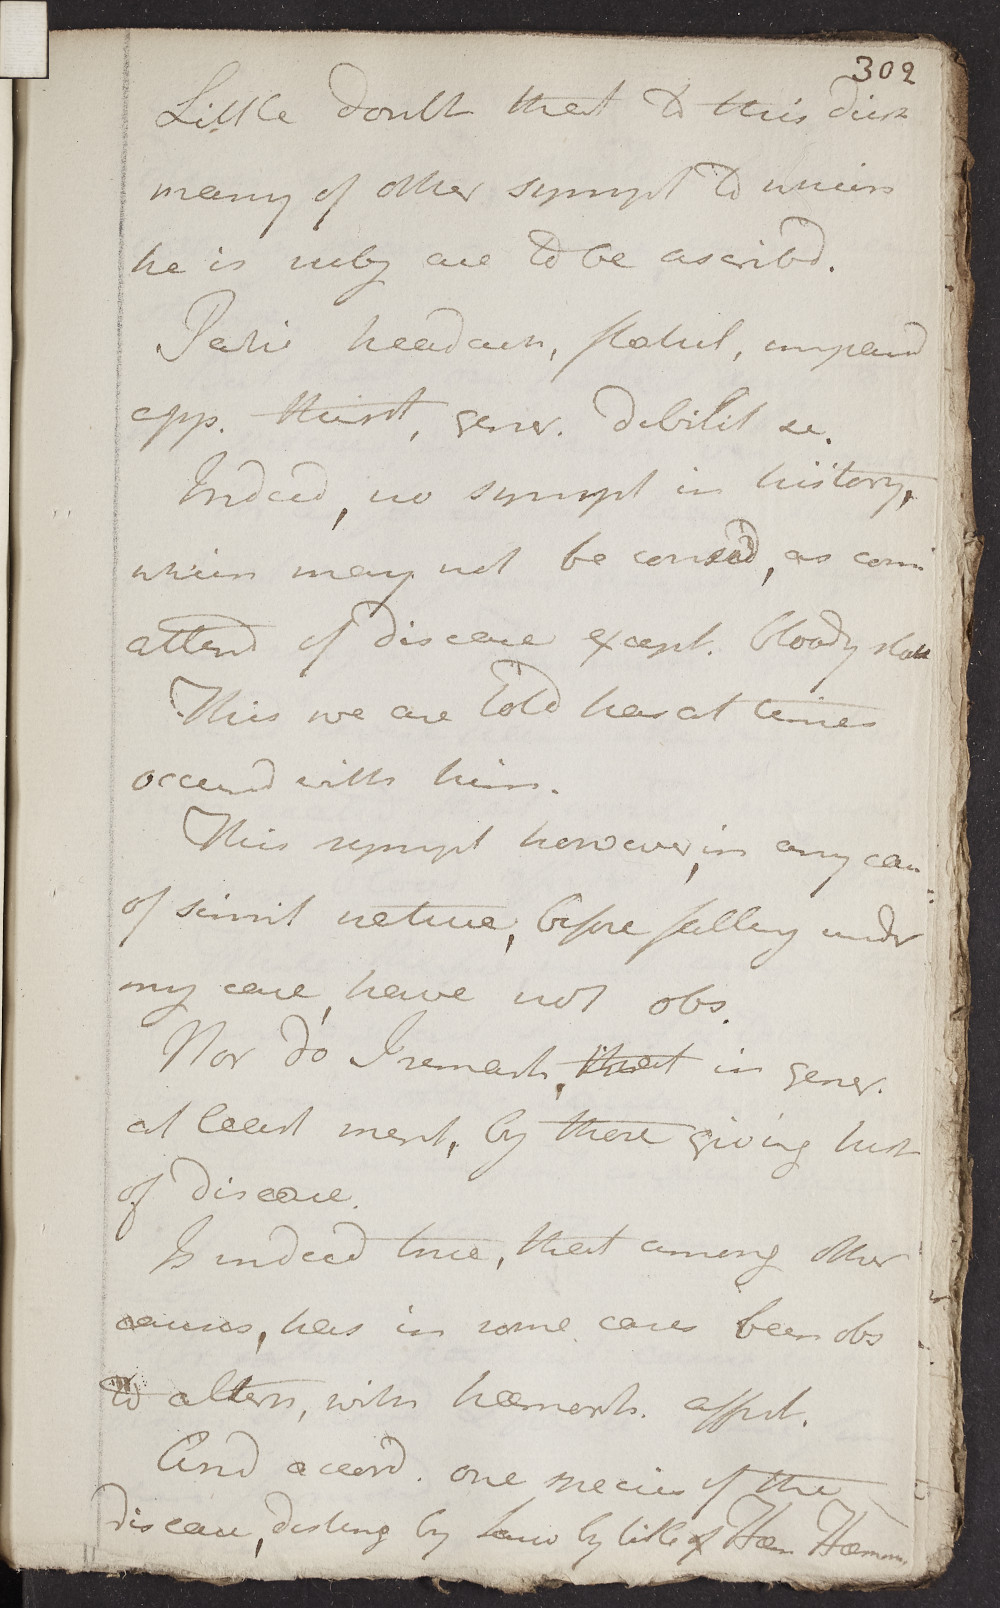 302
Little doubt that to this dise
many of other sympt to which
he is subj are to be ascribd.
Partic headach, flatul, impaird
app. thirst, gener. debilit &c.
Indeed, no sympt in history,
which may not be consid, as com
attend of disease except. bloody stools
This we are told has at times
occurrd with him.
This sympt however, in any case
of simil nature, before falling under
my care, have not obs.
Nor do I remark, that in gener.
at least ment, by those giving hist
of disease.
Is indeed true, that among other
causes, has in some cases been obs
to altern, with hæmorrh. affect.
And accord. one species of the
disease, disting by Sauv by title of Hæm